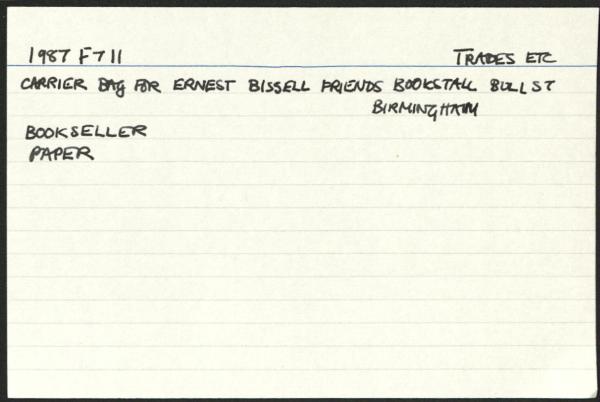 1987 F711 TRADES ETC
CARRIER BAG FOR ERNEST BISSELL FRIENDS BOOKSTALL BULL ST
BIRMINGHAM
BOOKSELLER
PAPER